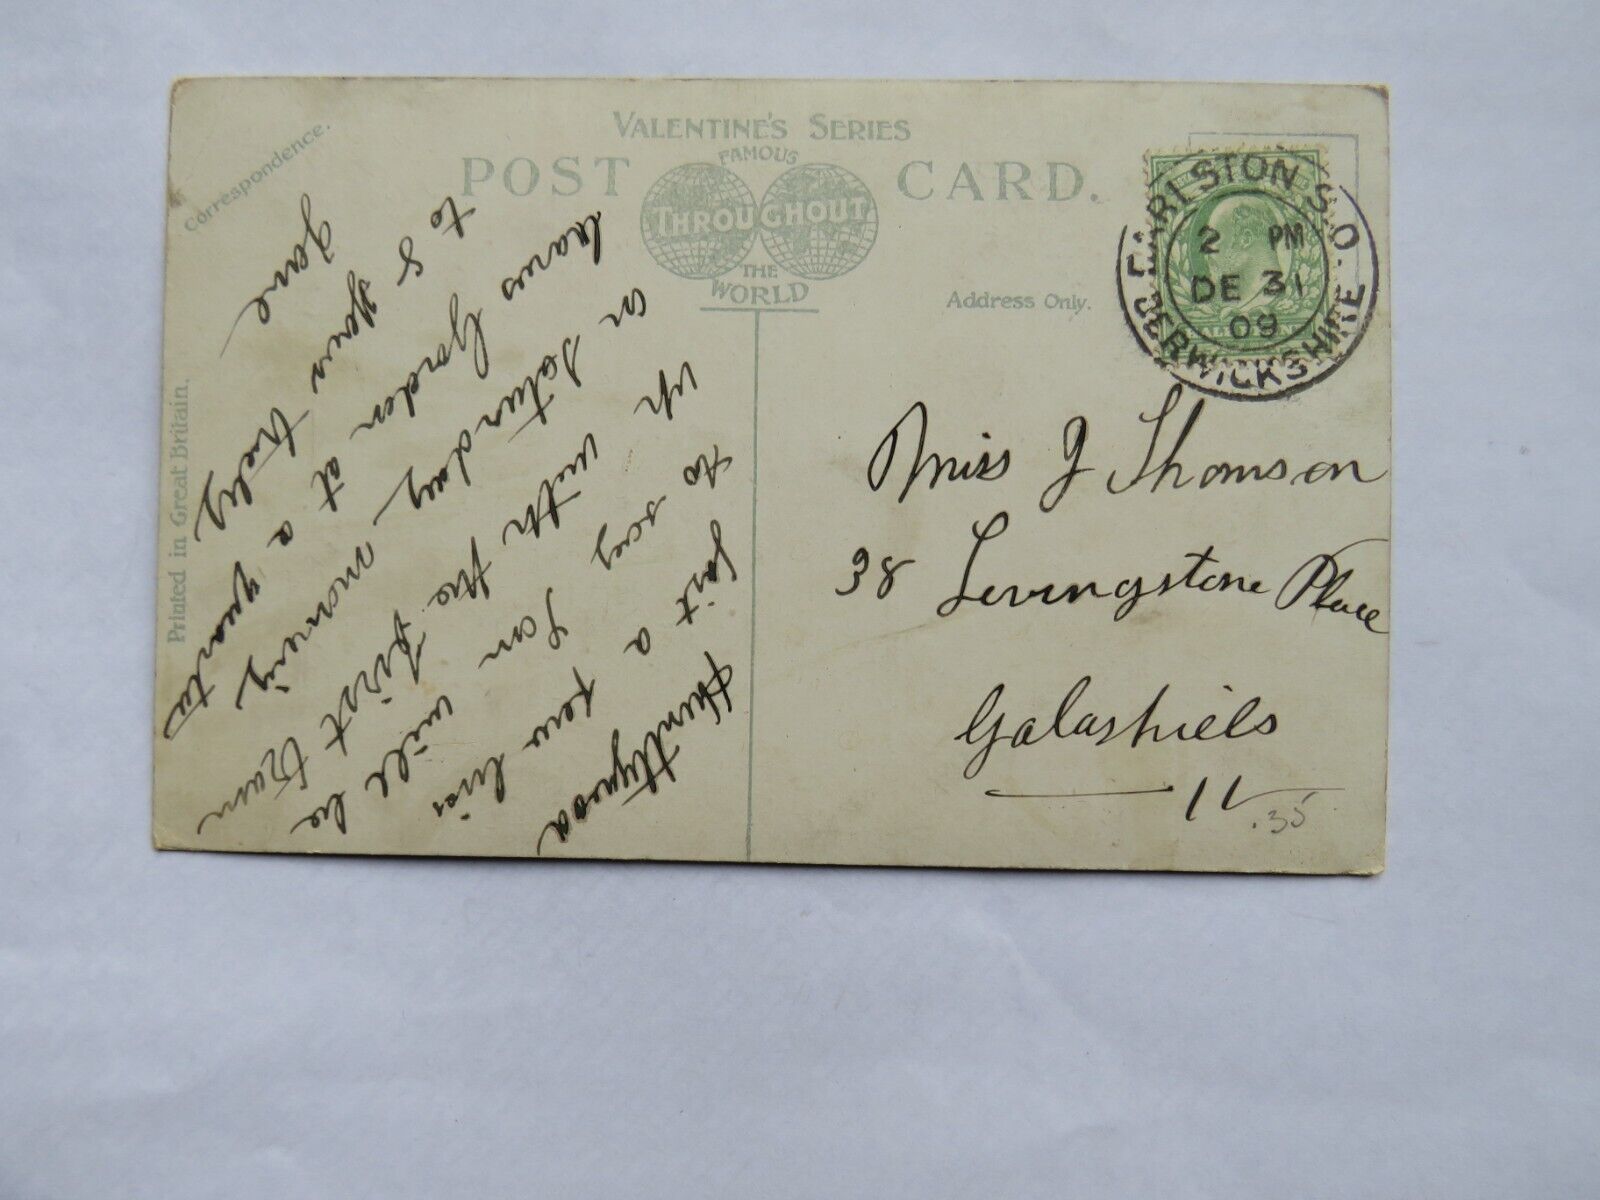 VALENTINE'S SERIES
POST CARD.
FAMOUS
THROUGHOUT
THE
WORLD
Correspondence.
Address Only.
Printed in Great Britain.
EARLSTON S.O.
2 PM
DE 31
09
BERWICKSHIRE
Just a few lins
to say Tom will be
up with the first train
on Saturday morning
leaves Gordon at a quarter
to 8 yours truly
Jane
Miss J Thomson
38 Levingstone Place
Galashiels
.35